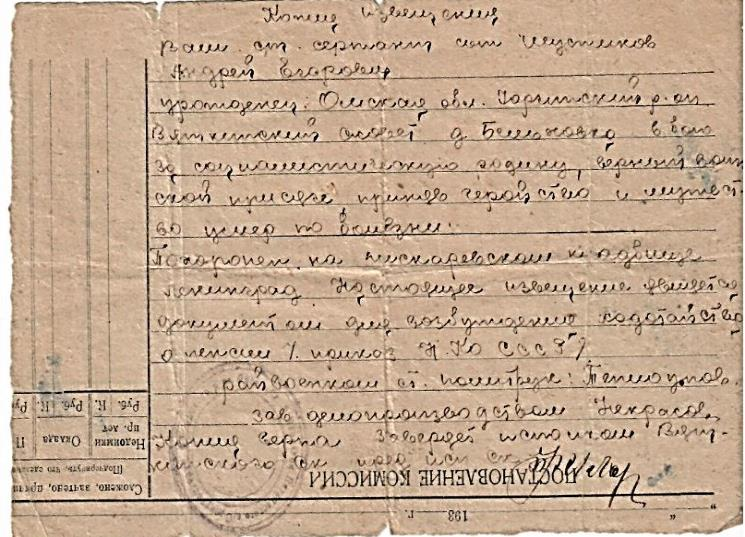 Копия извещения
Ваш ст. сержант
Андрей Егорович
уроженец: Омская обл. р-он
Вяткинский совет д. в бою
за социалистическую родину, верный воин-
ской присяге, проявив геройство и мужест-
во умер по болезни.
Похоронен на пискаревском кладбище
Ленинград. Настоящее извещение является
документом для возбуждения ходотайства
о пенсии / приказ Н.Ко СССР /
райвоенком ст. политрук:
зав делопроизводством Некрасов
Копия верна
ПОСТАНОВЛЕНИЕ КОМИССИИ
193 г.
Сложено, зачтено,
Подчеркнуть, что
Недоимки пр. лет
Оклада
Руб. К. Руб. К.